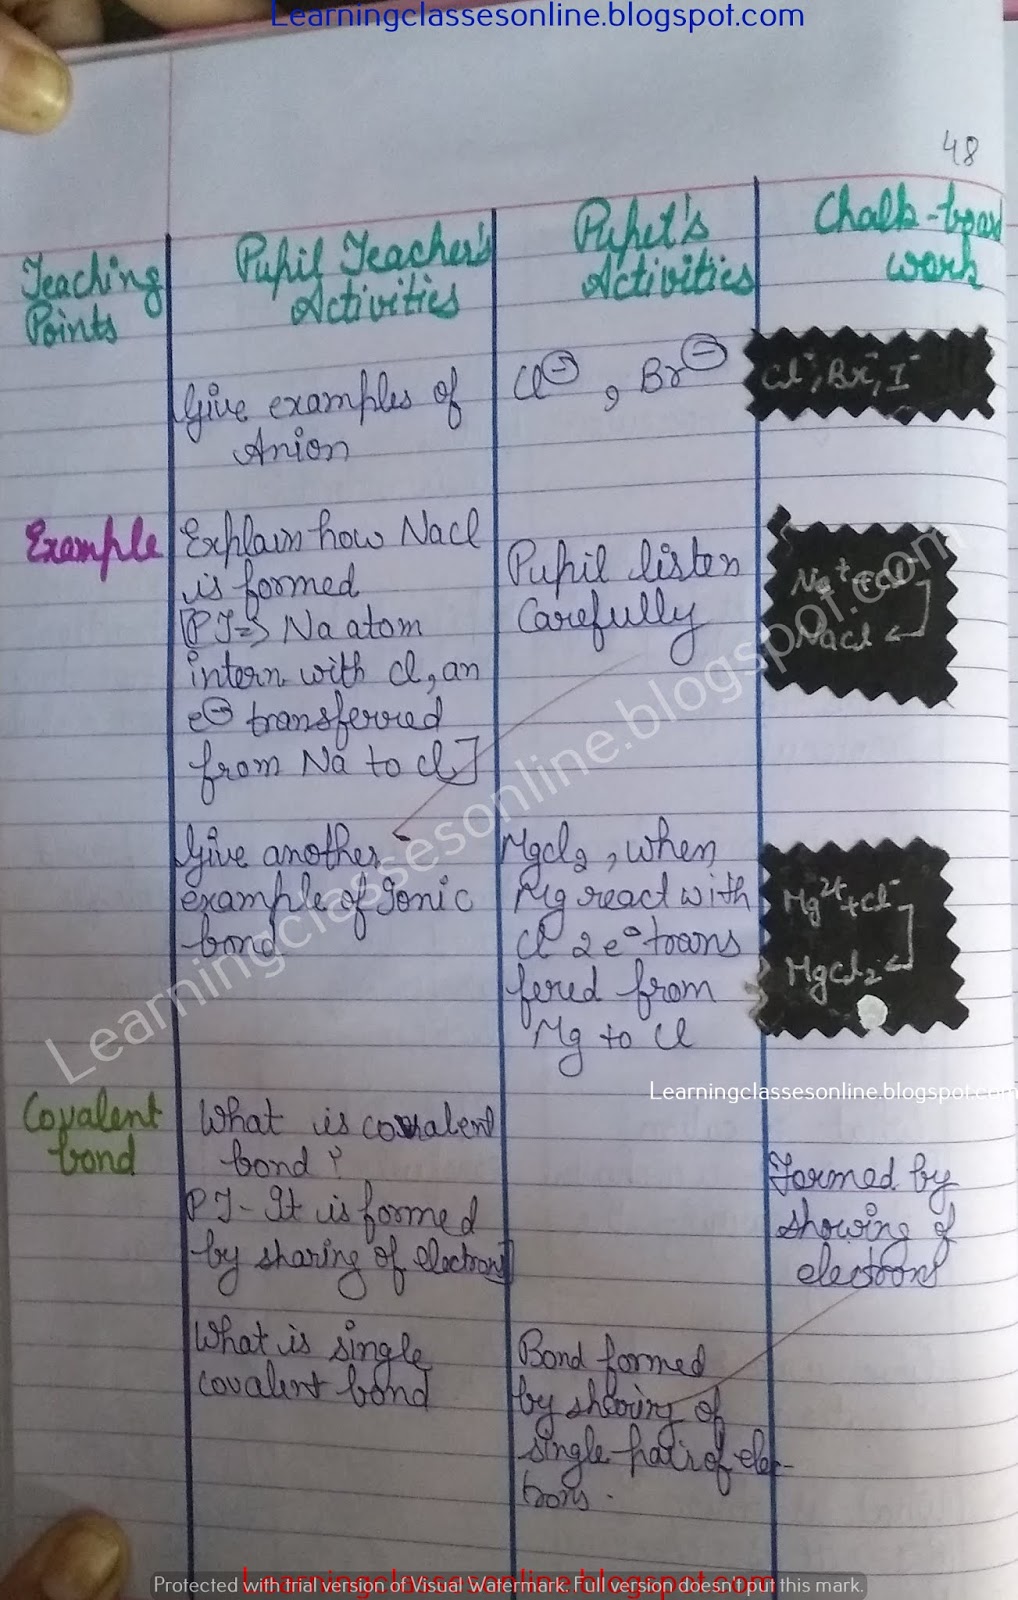 Learningclassesonline.blogspot.com
48
Teaching
Points
Pupil Teacher's
Activities
Pupil's
Activities
Chalk-board
work
Give examples of
Anion
Cl⊖, Br⊖
Cl⁻, Br⁻, I⁻
Example
Explain how Nacl
is formed
[PT⇒ Na atom
intern with cl, an
e⊖ transferred
from Na to cl]
Pupil listen
Carefully
Na⁺+Cl⁻
Nacl
Give another
example of Ionic
bond
Mgcl₂, when
Mg react with
cl 2e⁻ trans
fered from
Mg to cl
Mg²⁺+Cl⁻
MgCl₂
Learningclassesonline.blogspot.com
Learningclassesonline.blogspot.com
Covalent
bond
What is covalent
bond?
PT- It is formed
by sharing of electrons]
Formed by
showing of
electrons
What is single
covalent bond
Bond formed
by shearing of
single-pair of elec-
trons.
Learningclassesonline.blogspot.com
Protected with trial version of Visual Watermark. Full version doesn't put this mark.